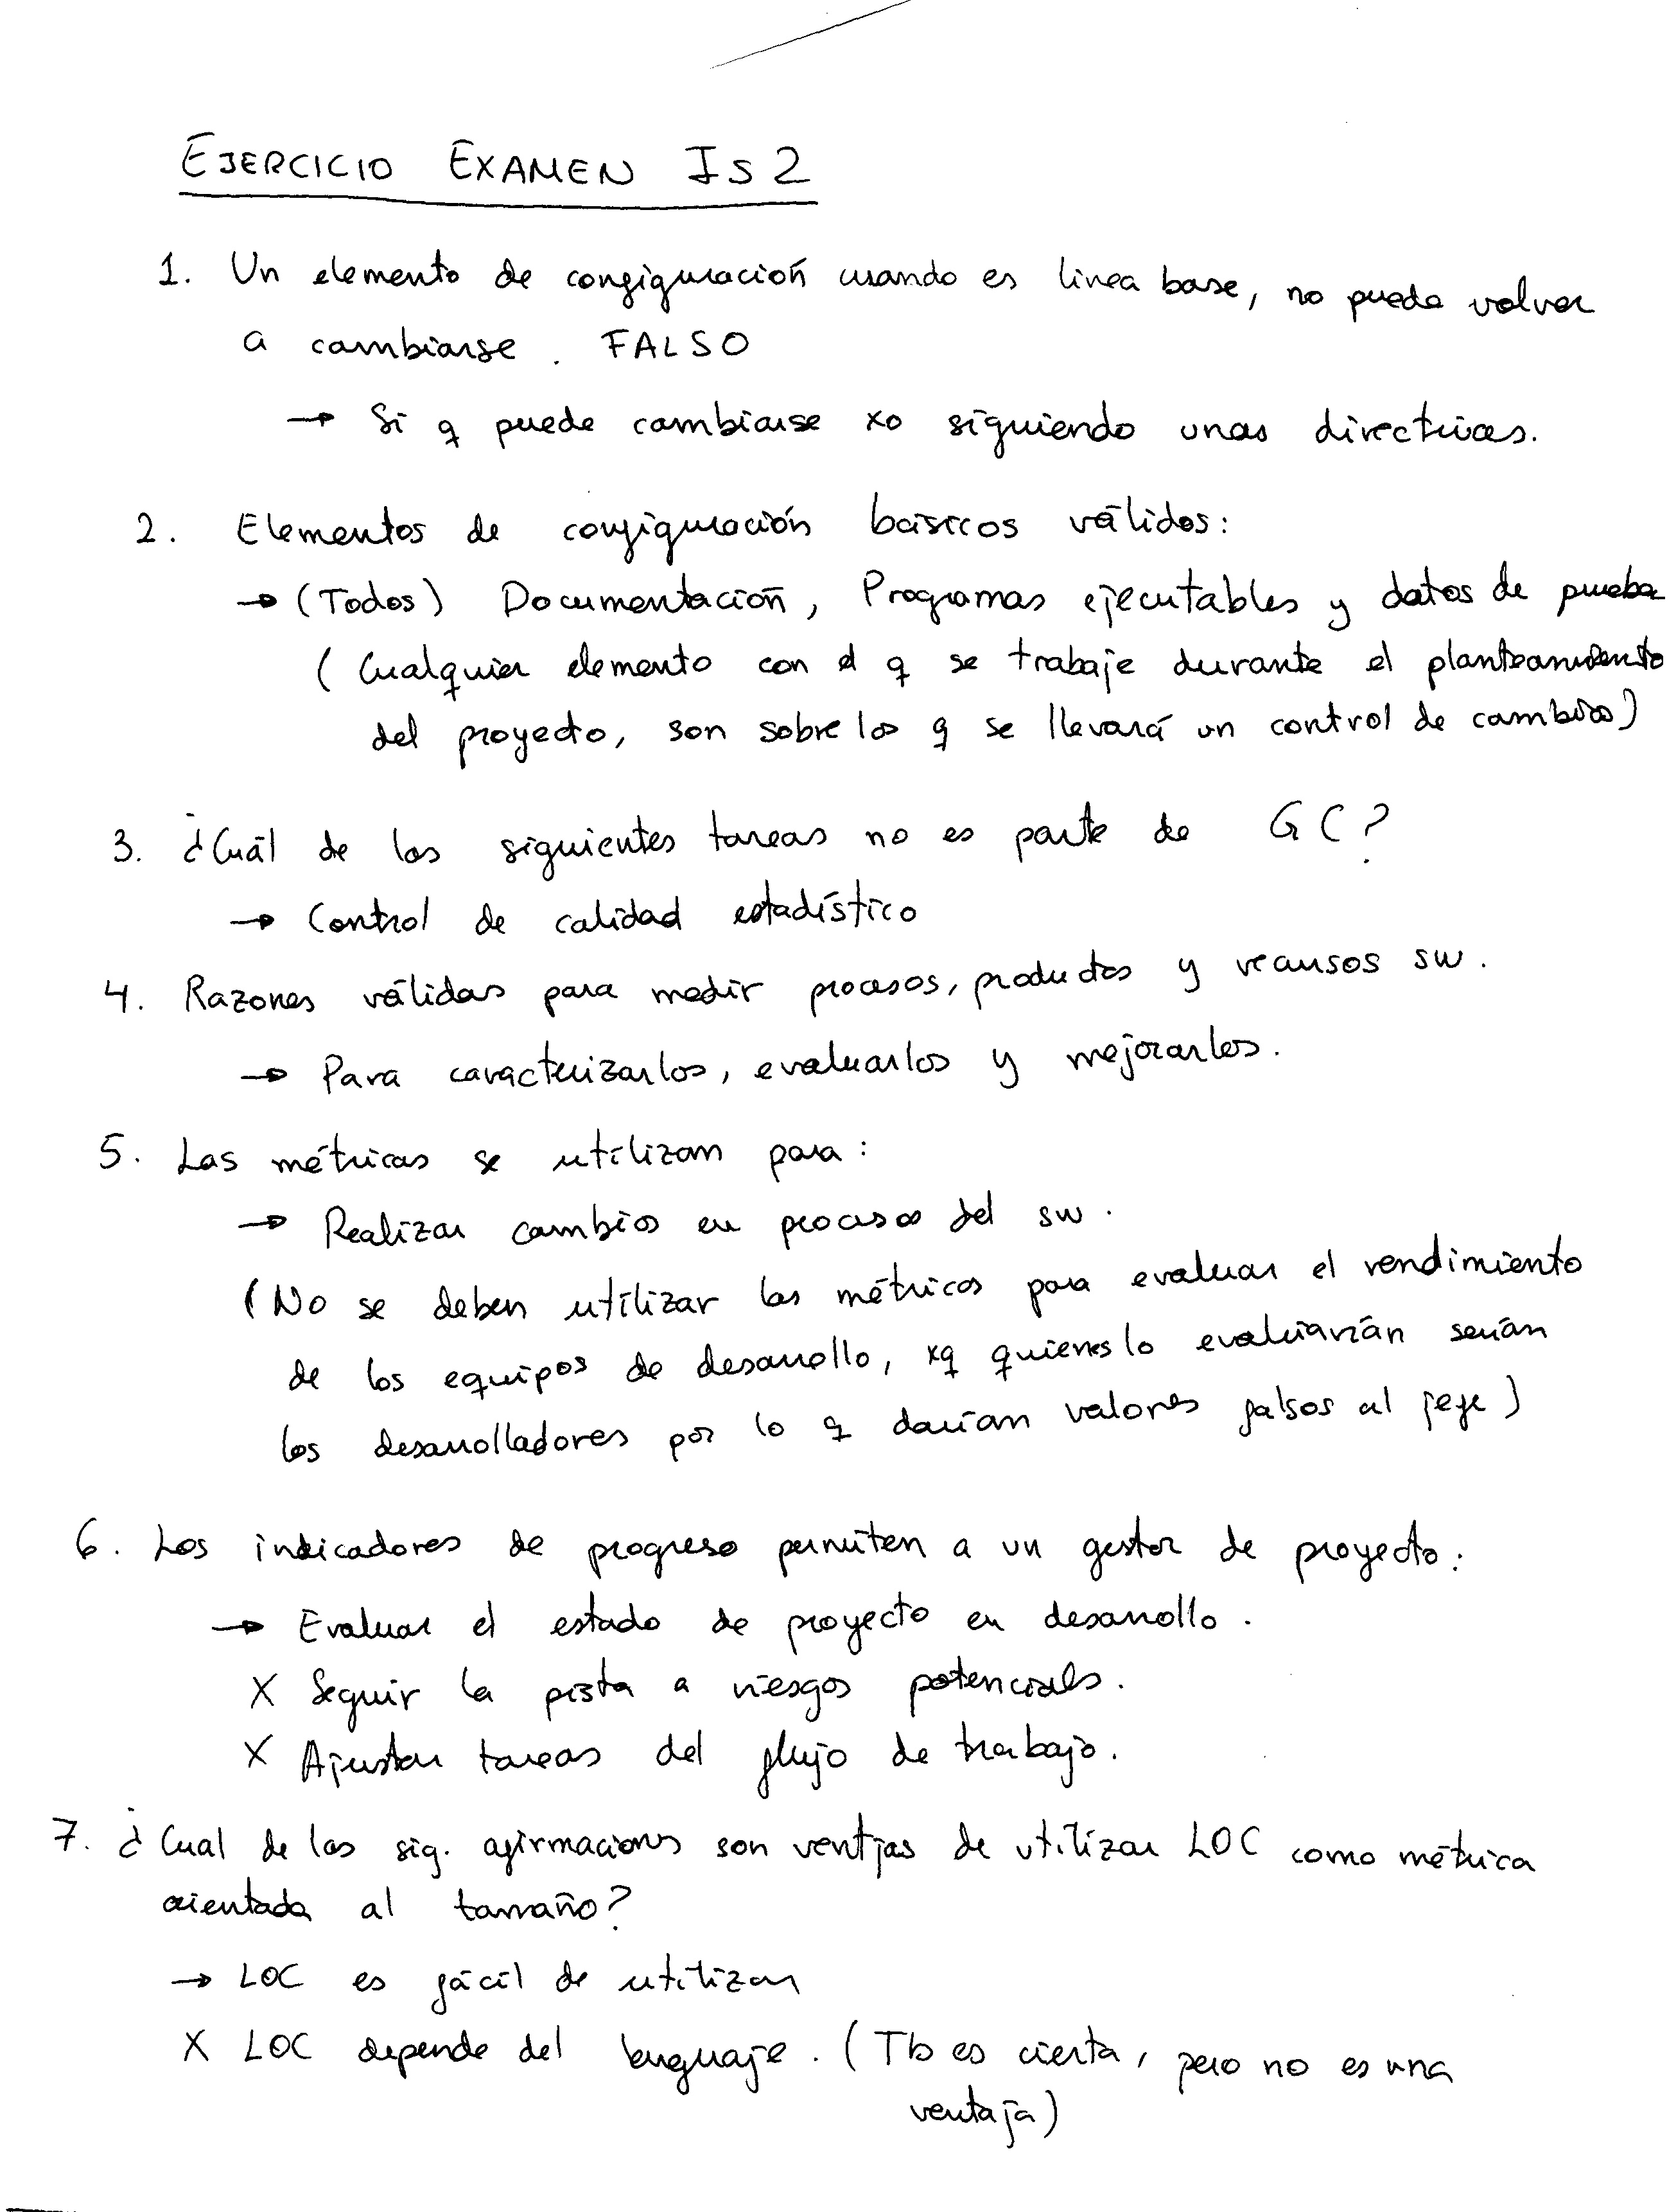 EJERCICIO EXAMEN IS2
1. Un elemento de configuración cuando es linea base, no puede volver
a cambiarse. FALSO
→ Si q puede cambiarse xo siguiendo unas directrices.
2. Elementos de configuración básicos válidos:
→ (Todos) Documentación, Programas ejecutables y datos de prueba
(Cualquier elemento con el q se trabaje durante el planteamiento
del proyecto, son sobre los q se llevará un control de cambios)
3. ¿Cuál de las siguientes tareas no es parte de GC?
→ Control de calidad estadístico
4. Razones válidas para medir procesos, productos y recursos sw.
→ Para caracterizarlos, evaluarlos y mejorarlos.
5. Las métricas se utilizan para:
→ Realizar cambios en procesos del sw.
(No se deben utilizar las métricas para evaluar el rendimiento
de los equipos de desarrollo, xq quienes lo evaluarían serían
los desarrolladores por lo q darían valores falsos al jefe)
6. Los indicadores de progreso permiten a un gestor de proyecto:
→ Evaluar el estado de proyecto en desarrollo.
X Seguir la pista a riesgos potenciales.
X Ajustar tareas del flujo de trabajo.
7. ¿Cual de las sig. afirmaciones son ventjas de utilizar LOC como métrica
orientada al tamaño?
→ LOC es fácil de utilizar
X LOC depende del lenguaje. (Tb es cierta, pero no es una
ventaja)